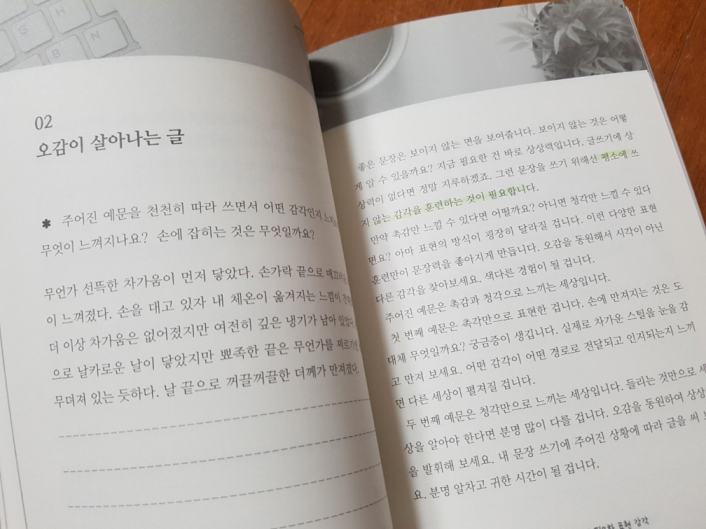 02
오감이 살아나는 글
✱ 주어진 예문을 천천히 따라 쓰면서 어떤 감각인지
무엇이 느껴지나요? 손에 잡히는 것은 무엇일까요?
무언가 선뜩한 차가움이 먼저 닿았다. 손가락 끝으로
이 느껴졌다. 손을 대고 있자 내 체온이 옮겨지는 느낌이
더 이상 차가움은 없어졌지만 여전히 깊은 냉기가 남아
으로 날카로운 날이 닿았지만 뾰족한 끝은 무언가를
무뎌져 있는 듯하다. 날 끝으로 꺼끌꺼끌한 더께가 만져졌다.
좋은 문장은 보이지 않는 면을 보여줍니다. 보이지 않는 것은 어떻
게 알 수 있을까요? 지금 필요한 건 바로 상상력입니다. 글쓰기에 상
상력이 없다면 정말 지루하겠죠. 그런 문장을 쓰기 위해선 평소에 쓰
지 않는 감각을 훈련하는 것이 필요합니다.
만약 촉감만 느낄 수 있다면 어떨까요? 아니면 청각만 느낄 수 있다
면요? 아마 표현의 방식이 굉장히 달라질 겁니다. 이런 다양한 표현
훈련만이 문장력을 좋아지게 만듭니다. 오감을 동원해서 시각이 아닌
다른 감각을 찾아보세요. 색다른 경험이 될 겁니다.
주어진 예문은 촉감과 청각으로 느끼는 세상입니다.
첫 번째 예문은 촉각만으로 표현한 겁니다. 손에 만져지는 것은 도
대체 무엇일까요? 궁금증이 생깁니다. 실제로 차가운 스팀을 눈을 감
고 만져 보세요. 어떤 감각이 어떤 경로로 전달되고 인지되는지 느끼
면 다른 세상이 펼쳐질 겁니다.
두 번째 예문은 청각만으로 느끼는 세상입니다. 들리는 것만으로 세
상을 알아야 한다면 분명 많이 다를 겁니다. 오감을 동원하여 상상
을 발휘해 보세요. 내 문장 쓰기에 주어진 상황에 따라 글을 써 보
요. 분명 알차고 귀한 시간이 될 겁니다.
표현 감각